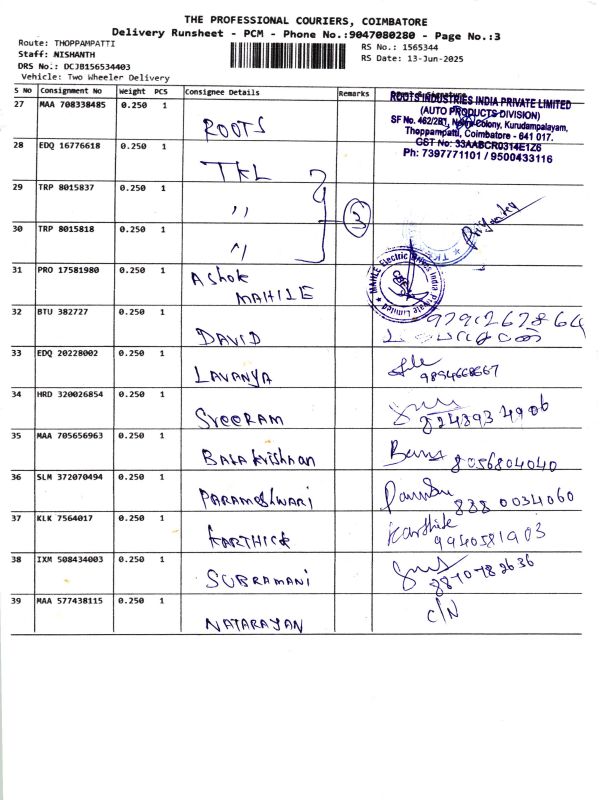 THE PROFESSIONAL COURIERS, COIMBATORE
Delivery Runsheet - PCM - Phone No.:9047080280 - Page No.:3
Route: THOPPAMPATTI
Staff: NISHANTH
DRS No.: DCJB156534403
Vehicle: Two Wheeler Delivery
RS No.: 1565344
RS Date: 13-Jun-2025
S No Consignment No Weight PCS Consignee Details Remarks
27 MAA 708338485 0.250 1 ROOTS
ROOTS INDUSTRIES INDIA PRIVATE LIMITED
(AUTO PRODUCTS DIVISION)
SF No. 462/2B1, Colony, Kurudampalayam,
Thoppampatti, Coimbatore - 641 017.
GST No: 33AABCR0314E1Z6
Ph: 7397771101 / 9500433116
28 EDQ 16776618 0.250 1 TKL
29 TRP 8015837 0.250 1 ,, 3
30 TRP 8015818 0.250 1 ,,
31 PRO 17581980 0.250 1 Ashok
MAHILE
MAHLE Electric Drives India Private Limited
32 BTU 382727 0.250 1 DAVID
33 EDQ 20228002 0.250 1 LAVANYA
34 HRD 320026854 0.250 1 SreeRAM
8248934906
35 MAA 705656963 0.250 1 BALAKrishnan
8056804040
36 SLM 372070494 0.250 1 PARAMeshwARi
888 0034060
37 KLK 7564017 0.250 1 KARTHICK Karthik
9940581903
38 IXM 508434003 0.250 1 SUBRAMANi
39 MAA 577438115 0.250 1 NATARAYAN C/N